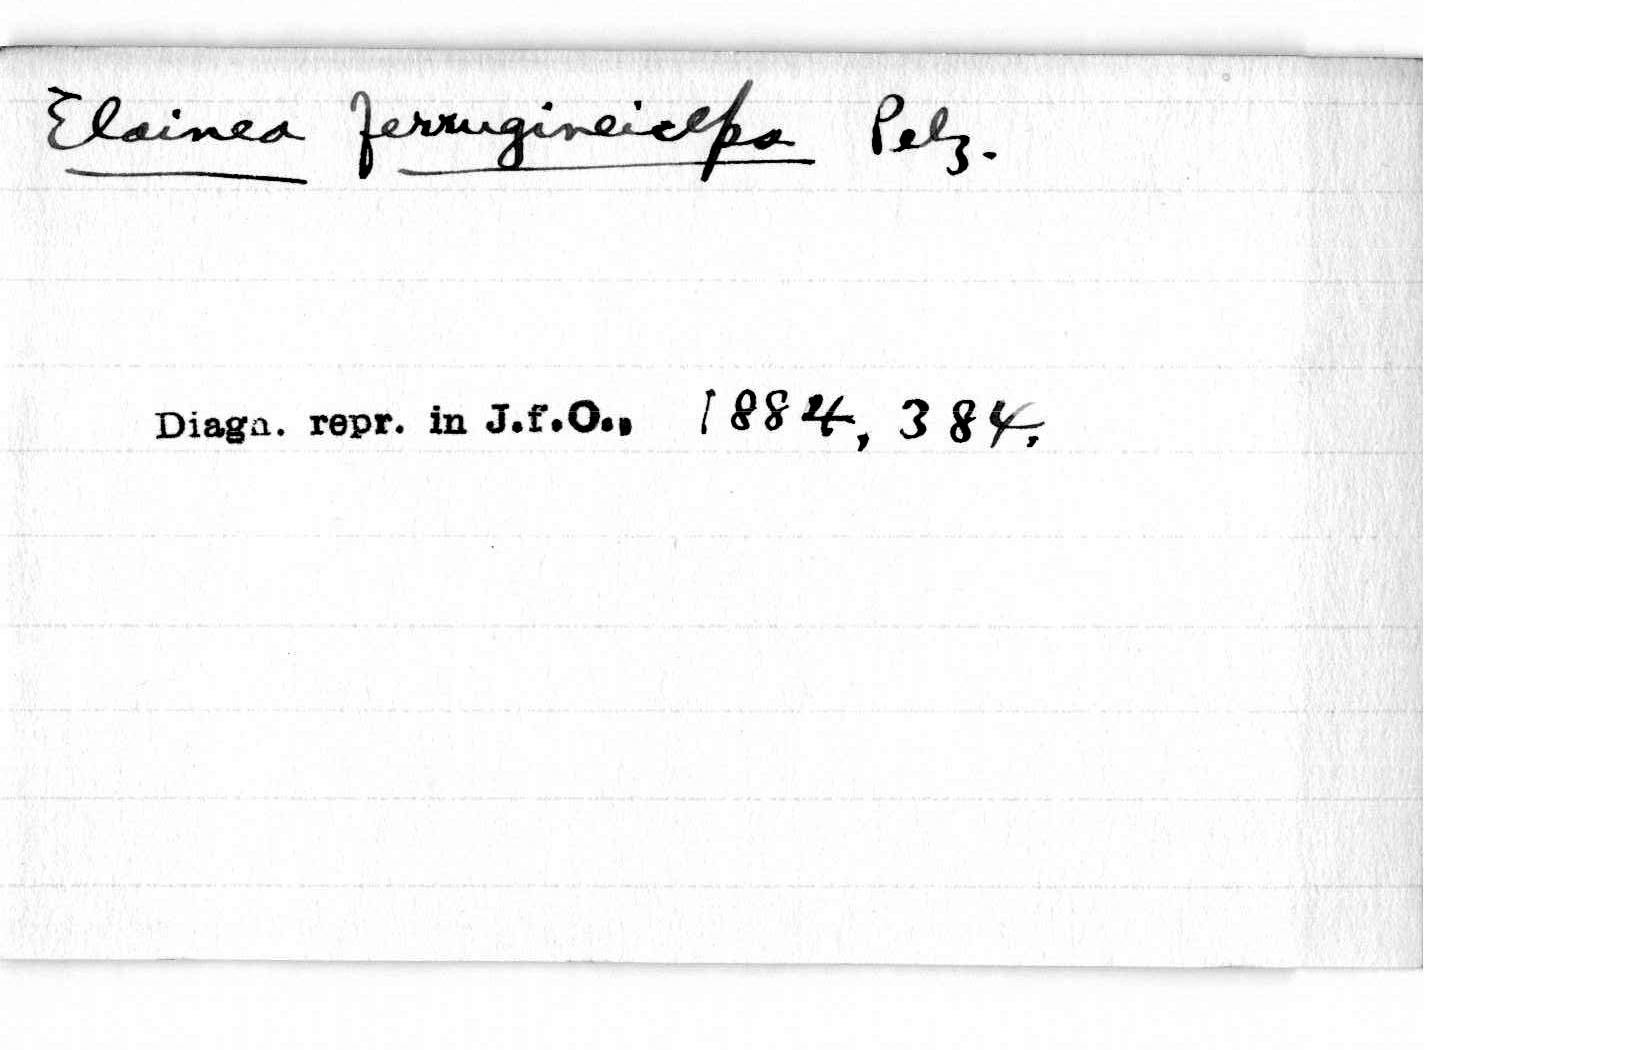 Elainea ferrugineiceps Pelz.
Diagn. repr. in J.f.O., 1884, 384.